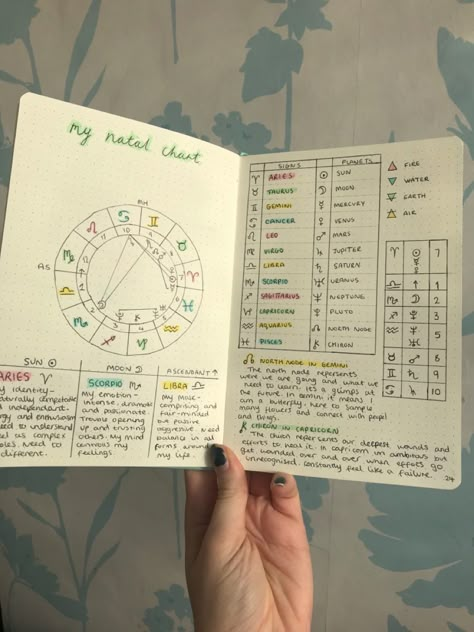 my natal chart
MH
AS
10
11
SUN ☉
ARIES ♈
identity -
independant.
need to understand
complex
need to
different.
MOON ☽
SCORPIO ♏
my emotion -
intense, dramatic
and passionate
opening up
and trusting
others. my mind
controls my
feelings.
ASCENDANT ↑
LIBRA ♎
and fair-minded
but passive
aggressive. Need
balance in all
forms around
my life.
SIGNS PLANETS
♈ ARIES ☉ SUN
♉ TAURUS ☽ MOON
♊ GEMINI ☿ MERCURY
♋ CANCER ♀ VENUS
♌ LEO ♂ MARS
♍ VIRGO ♃ JUPITER
♎ LIBRA ♄ SATURN
♏ SCORPIO ♅ URANUS
♐ SAGITTARIUS ♆ NEPTUNE
♑ CAPRICORN ♇ PLUTO
♒ AQUARIUS ☊ NORTH NODE
♓ PISCES ⚷ CHIRON
FIRE
WATER
EARTH
AIR
♈ ☉ 7
♎ ↑ 1
♏ ☽ 2
♐ 3
♒ 5
♉ ♂ 8
♊ ♄ 9
♋ 10
☊ NORTH NODE IN GEMINI
The north node represents
were we are going and what we
need to learn. it's a glimpse at
the future. in gemini it means i
am a butterfly. here to sample
many flowers and connect with
and things.
⚷ CHIRON IN CAPRICORN
The chiron represents our deepest wounds and
efforts to heal it. in capricorn im ambitous but
get wounded over and over when efforts go
unrecognised. constantly feel like a failure.
24